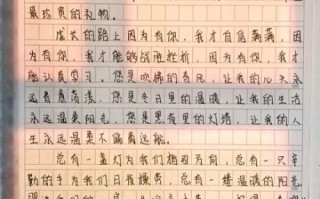 最珍贵的礼物。
成长的路上，因为有你，我才自信满满，因
为有你，我才能够战胜挫折，因为有你，我才
能认真学习。您是吹拂的春风，让我的心灵永
远春意荡漾，您是冬日里的温暖，让我的生活
永远温柔阳光，您是黑夜里的灯塔，让我的人
生永远温柔不偏离远航。
总有一盏灯为我们指明方向，总有一只辛
勤的手为我们日夜操劳，总有一缕温暖的阳光